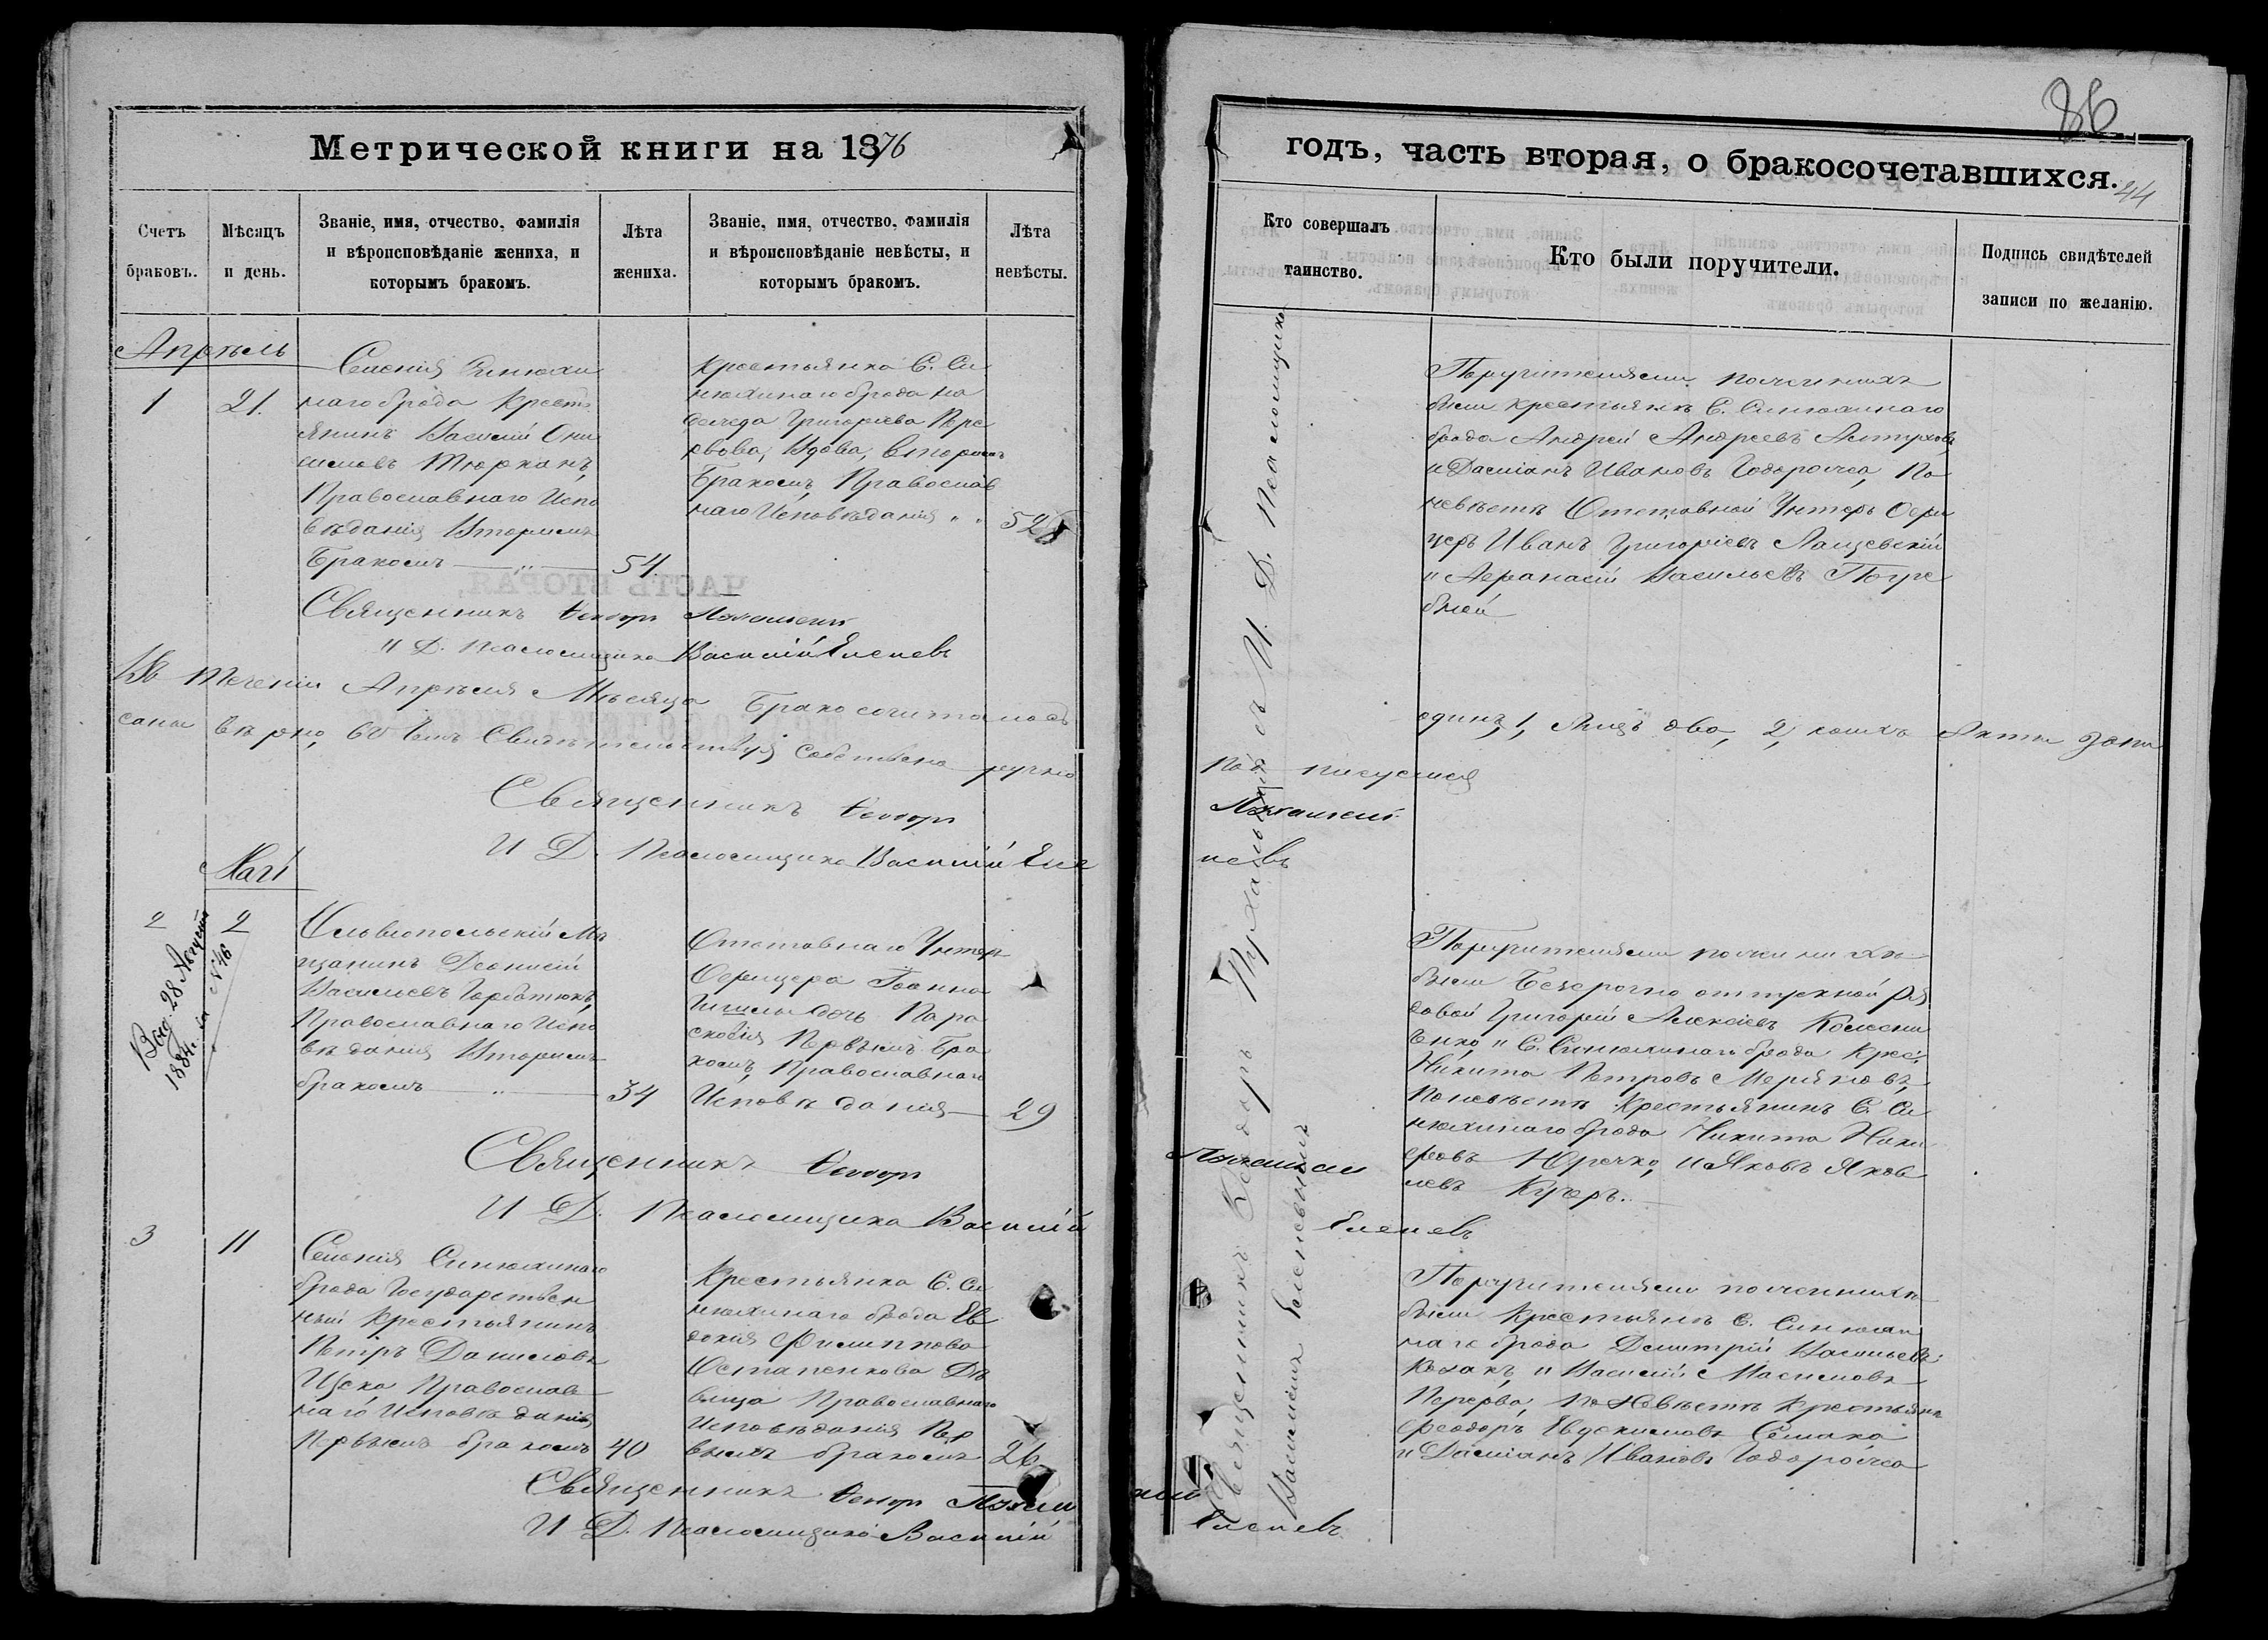 86
Метрической книги на 1876
годъ, часть вторая, о бракосочетавшихся.
44
Счетъ браковъ.
Мѣсяцъ и день.
Званіе, имя, отчество, фамилія и вѣроисповѣданіе жениха, и которымъ бракомъ.
Лѣта жениха.
Званіе, имя, отчество, фамилія и вѣроисповѣданіе невѣсты, и которымъ бракомъ.
Лѣта невѣсты.
Кто совершалъ таинство.
Кто были поручители.
Подпись свидѣтелей записи по желанію.
Апрѣль
1
21.
Селенія Синюхи
наго брода крест
янинъ Василій Они
симовъ Тюрканъ,
Православнаго Испо
вѣданія Вторымъ
Бракомъ
54.
Крестьянка С. Си
нюхинаго брода
Григоріева Пере
рвова, Вдова, Вторымъ
Бракомъ, Православ
наго Исповѣданія
52
Поручителями по женихѣ
были крестьянѣ С. Синюхинаго
брода Андрей Андреевъ
и Даміанъ Ивановъ По
невѣстѣ Отставной Унтеръ Офи
церъ Иванъ Григоріевъ
и Афанасій Васильевъ
Священникъ Ѳеодоръ
И Д. Псаломщика Василій Еленевъ
Въ теченіи Апрѣля Мѣсяца Бракосочиталось
одинъ, 1, лицъ два, 2, коихъ Акты запи
саны вѣрно, въ чемъ Свидѣтельствуя Собственно ручно
подписуемся
Священникъ Ѳеодоръ
И Д. Псаломщика Василій Еле
невъ
Май
2
2
Выд. 28 Августа
1884 г. за № 46
Ольвіопольскій Мѣ
щанинъ Діонисій
Васильевъ Горбатюкъ,
Православнаго Испо
вѣданія Вторымъ
бракомъ
34
Отставнаго Унтеръ
Офицера Іоанна
дочь Пара
скевія Первымъ Бра
комъ, Православнаго
Исповѣданія
29
Поручителями по женихѣ
были Безсрочно отпускной Ря
довой Григорій Алексіевъ Колесни
ченко, и С. Синюхинаго брода Крес.
Никита Петровъ
По невѣстѣ Крестьянинъ С. Си
нюхинаго брода Никита Ники
форовъ Юречко, и Яковъ Яков
левъ Кучеръ.
Священникъ Ѳеодоръ
И Д. Псаломщика Василій
Еленевъ
3
11
Селенія Синюхинаго
брода Государствен
ный крестьянинъ
Петръ Даниловъ
Православ
наго Исповѣданія
Первымъ бракомъ
40
Крестьянка С. Си
нюхинаго брода Ев
докія Филиппова
Остапенкова Дѣ
вица Православнаго
Исповѣданія Пер
вымъ бракомъ
26
Поручителями по женихѣ
были Крестьянѣ С. Синюхи
наго брода Димитрій Васильевъ
Козакъ, и Василій Максимовъ
Перерва, По Невѣстѣ Крестьяне
Феодоръ Евдокимовъ Семака
и Даміанъ Ивановъ
Священникъ Ѳеодоръ
И Д. Псаломщика Василій
Еленевъ
Священникъ Ѳеодоръ съ И. Д. Псаломщика
Василіемъ Еленевымъ